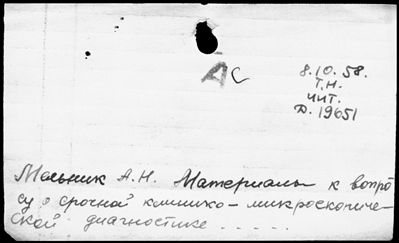 АС
8.10.58.
Т.Н.
чит.
Д. 19651
Мельник А.Н. Материалы к вопро
су о срочной клинико-микроскопиче-
ской диагностике . . . . .